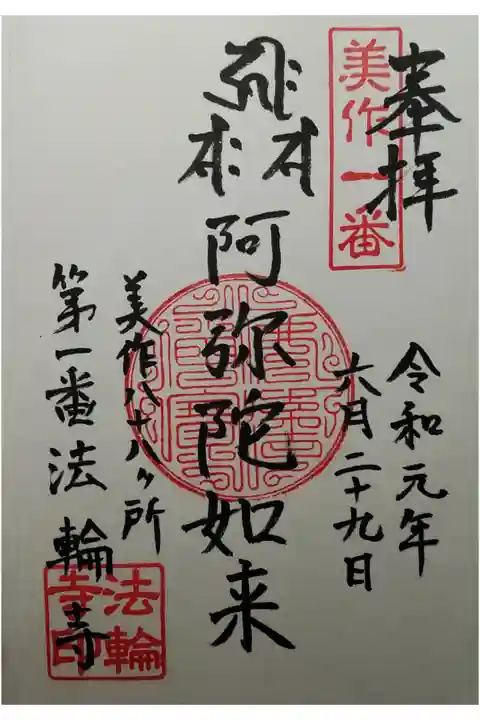 奉拝
美作一番
令和元年
六月二十九日
阿弥陀如来
美作八十八ヶ所
第一番法輪寺
法輪
寺印